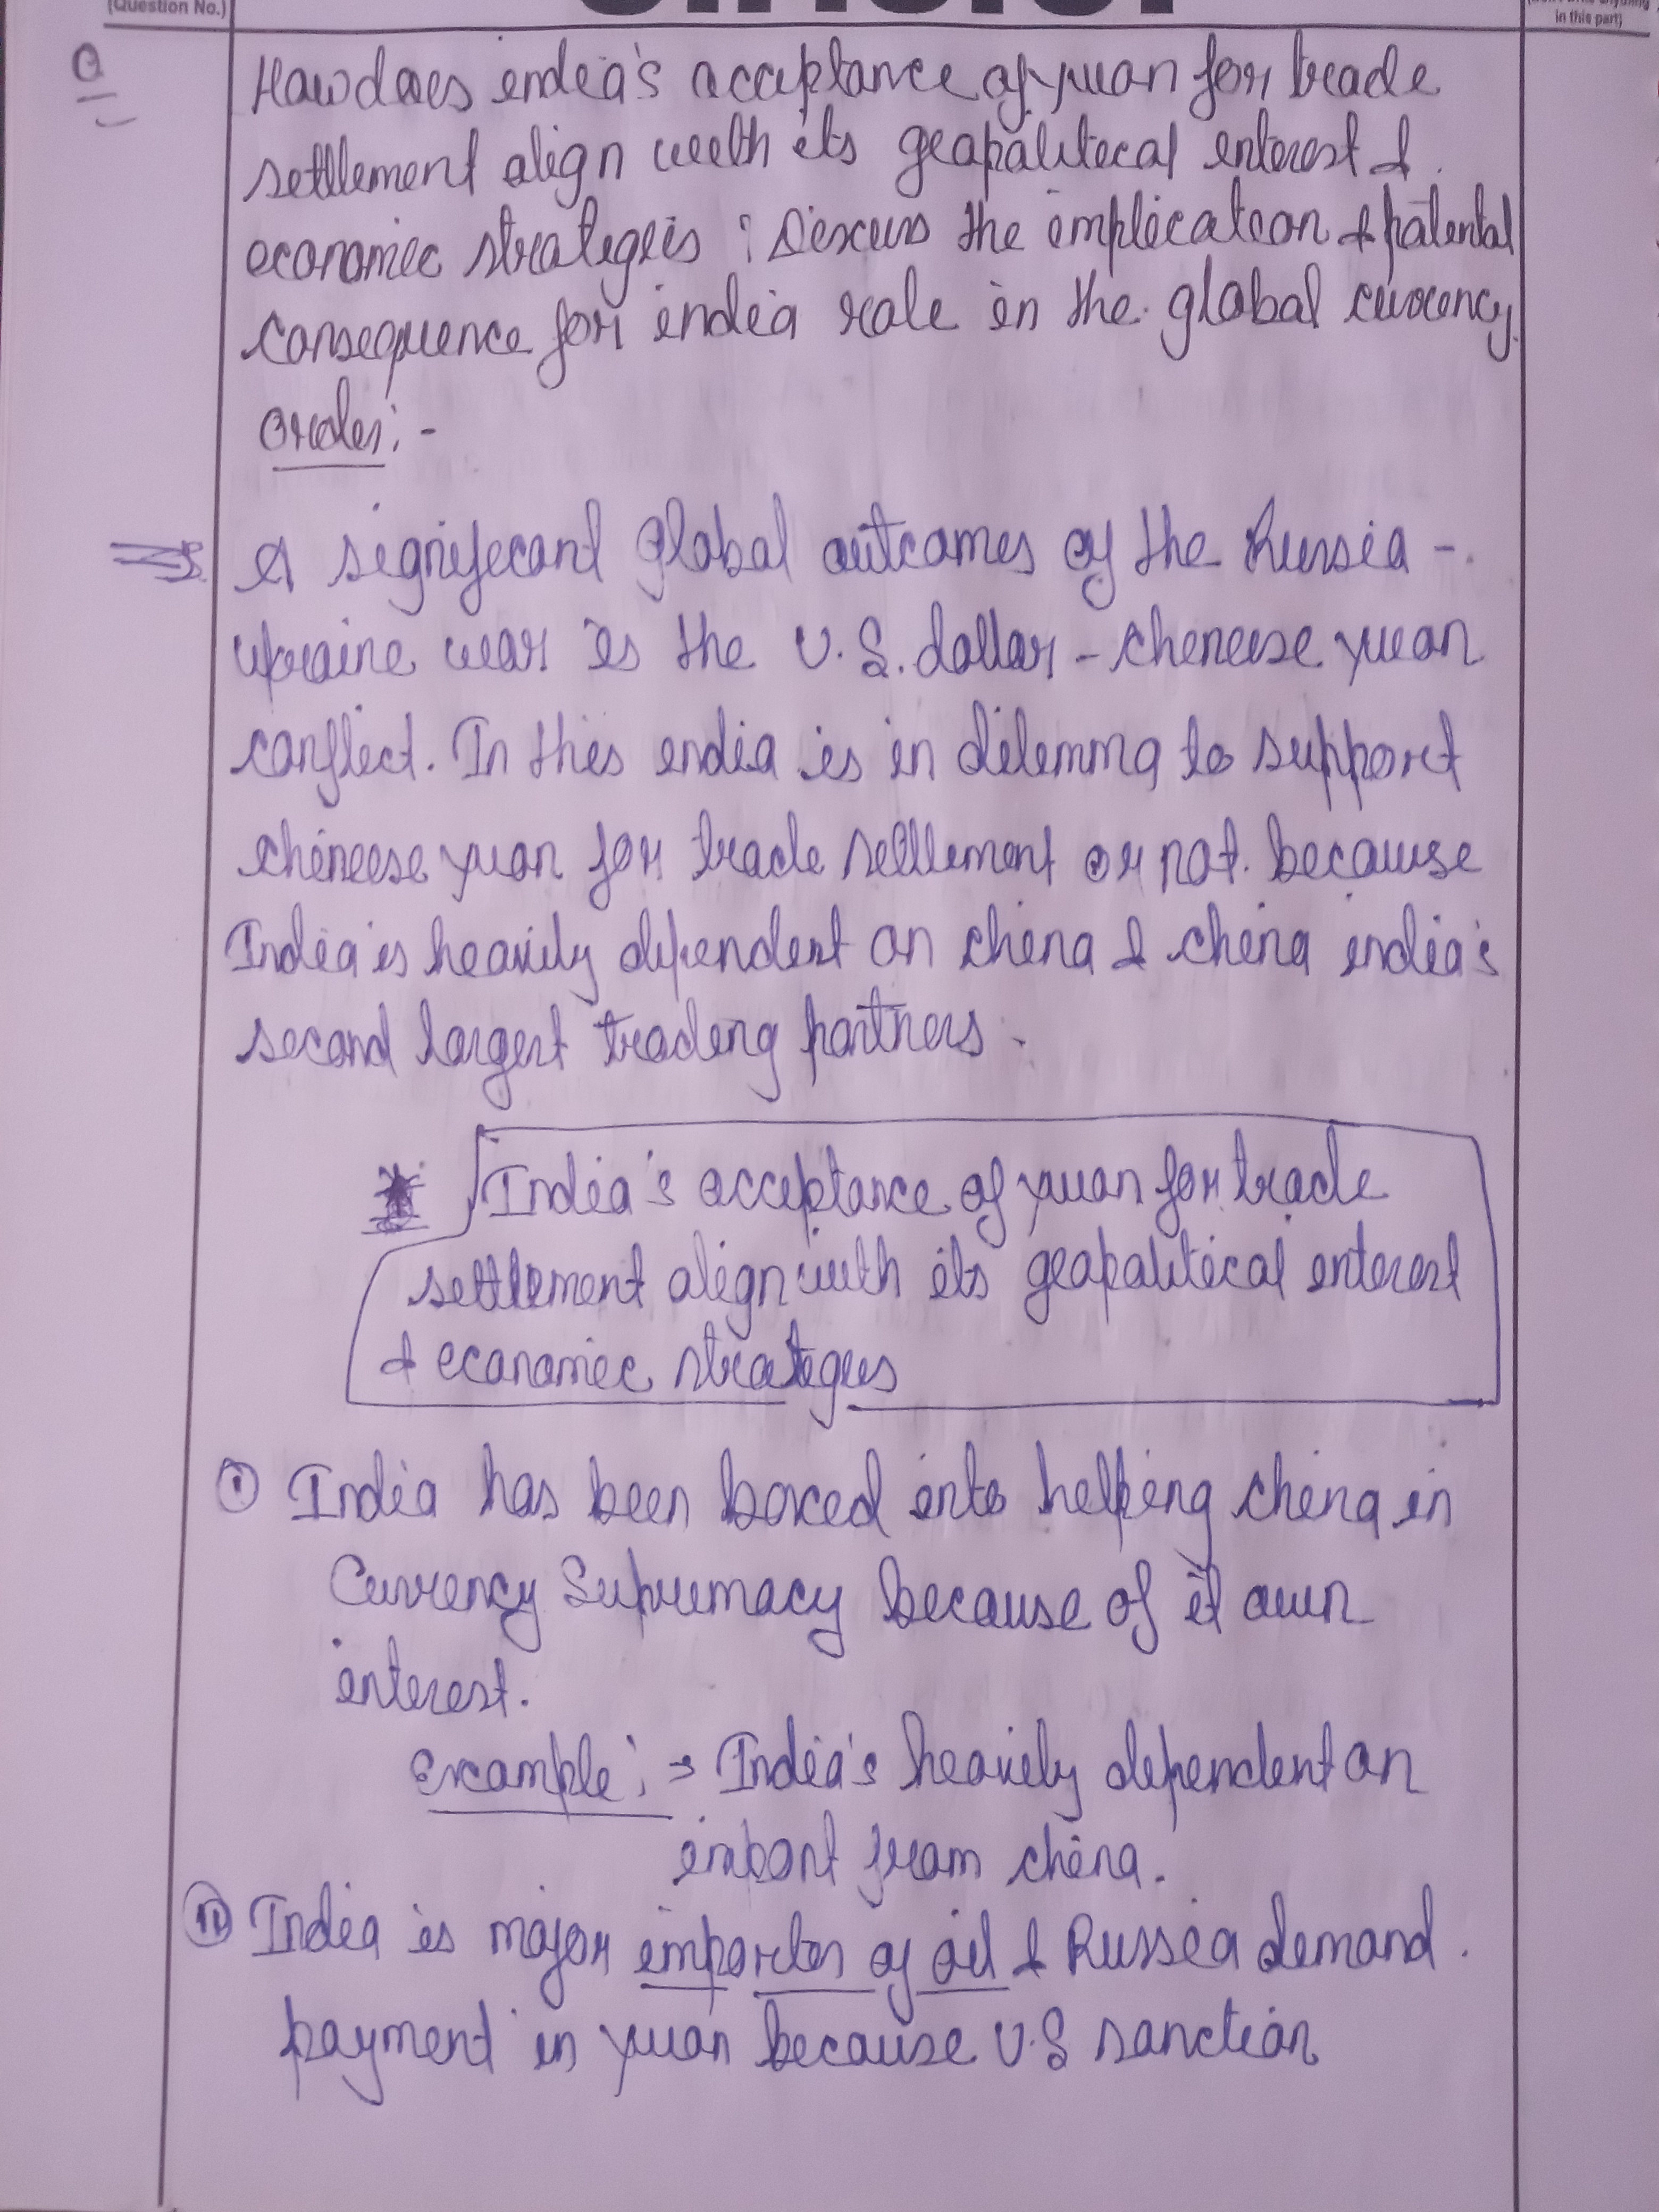 (Question No.)
in this part)
Q
How does india's acceptance of yuan for trade
settlement align with its geopolitical interest &
economic strategies ? Discuss the implication & potential
consequence for india role in the global currency
order :-
A significant global outcomes of the Russia -
Ukraine war is the U.S. dollar - cheneese yuan
conflict. In this india is in dilemma to support
cheneese yuan for trade settlement or not. because
India is heavily dependent on china & china india's
second largest trading partners.
* India's acceptance of yuan for trade
settlement align with its geopolitical interest
& economic strategies
① India has been boxed into helping china in
Currency Supremacy because of it own
interest.
Example : → India's heavily dependent on
import from china.
⑪ India is major importer of oil & Russia demand
payment in yuan because U.S sanction